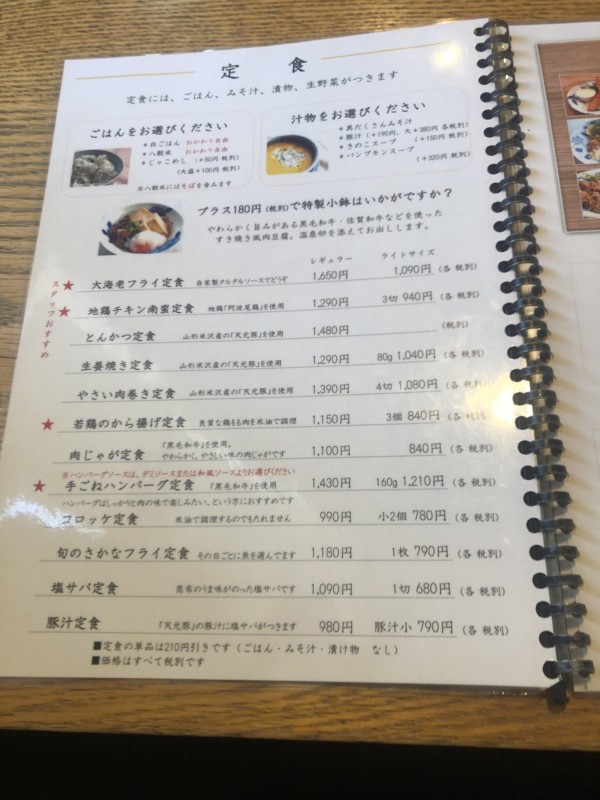 定食
定食には、ごはん、みそ汁、漬物、生野菜がつきます
ごはんをお選びください
＊白ごはん おかわり自由
＊八穀米 おかわり自由
＊じゃこめし （＋50円 税別）
（大盛＋100円 税別）
※八穀米にはそばを含みます
汁物をお選びください
＊具だくさんみそ汁
＊豚汁（＋190円、大＋380円 各税別）
＊きのこスープ （＋150円 税別）
＊パンプキンスープ
（＋320円 税別）
プラス180円（税別）で特製小鉢はいかがですか？
やわらかく旨みがある黒毛和牛・佐賀和牛などを使った
すき焼き風肉豆腐。温泉卵を添えてお出しします。
レギュラー ライトサイズ
スタッフおすすめ
★ 大海老フライ定食 自家製タルタルソースでどうぞ 1,650円 1,090円（各 税別）
★ 地鶏チキン南蛮定食 地鶏「阿波尾鶏」を使用 1,290円 3切 940円（各 税別）
とんかつ定食 山形米沢産の「天元豚」を使用 1,480円 （税別）
生姜焼き定食 山形米沢産の「天元豚」を使用 1,290円 80g 1,040円（各 税別）
やさい肉巻き定食 山形米沢産の「天元豚」を使用 1,390円 4切 1,080円（各 税別）
★ 若鶏のから揚げ定食 良質な鶏もも肉を米油で調理 1,150円 3個 840円（各 税別）
「黒毛和牛」を使用。
肉じゃが定食 やわらかく、やさしい味の肉じゃがです 1,100円 840円（各 税別）
※ハンバーグソースは、デミソースまたは和風ソースよりお選びください
★ 手ごねハンバーグ定食 「黒毛和牛」を使用 1,430円 160g 1,210円（各 税別）
ハンバーグはしっかりと肉の味で楽しみたい、という方におすすめです
コロッケ定食 米油で調理するのでもたれません 990円 小2個 780円（各 税別）
旬のさかなフライ定食 その日ごとに魚を選んでます 1,180円 1枚 790円（各 税別）
塩サバ定食 昆布のうま味がのった塩サバです 1,090円 1切 680円（各 税別）
豚汁定食 「天元豚」の豚汁に塩サバがつきます 980円 豚汁小 790円（各 税別）
■定食の単品は210円引きです（ごはん・みそ汁・漬け物 なし）
■価格はすべて税別です